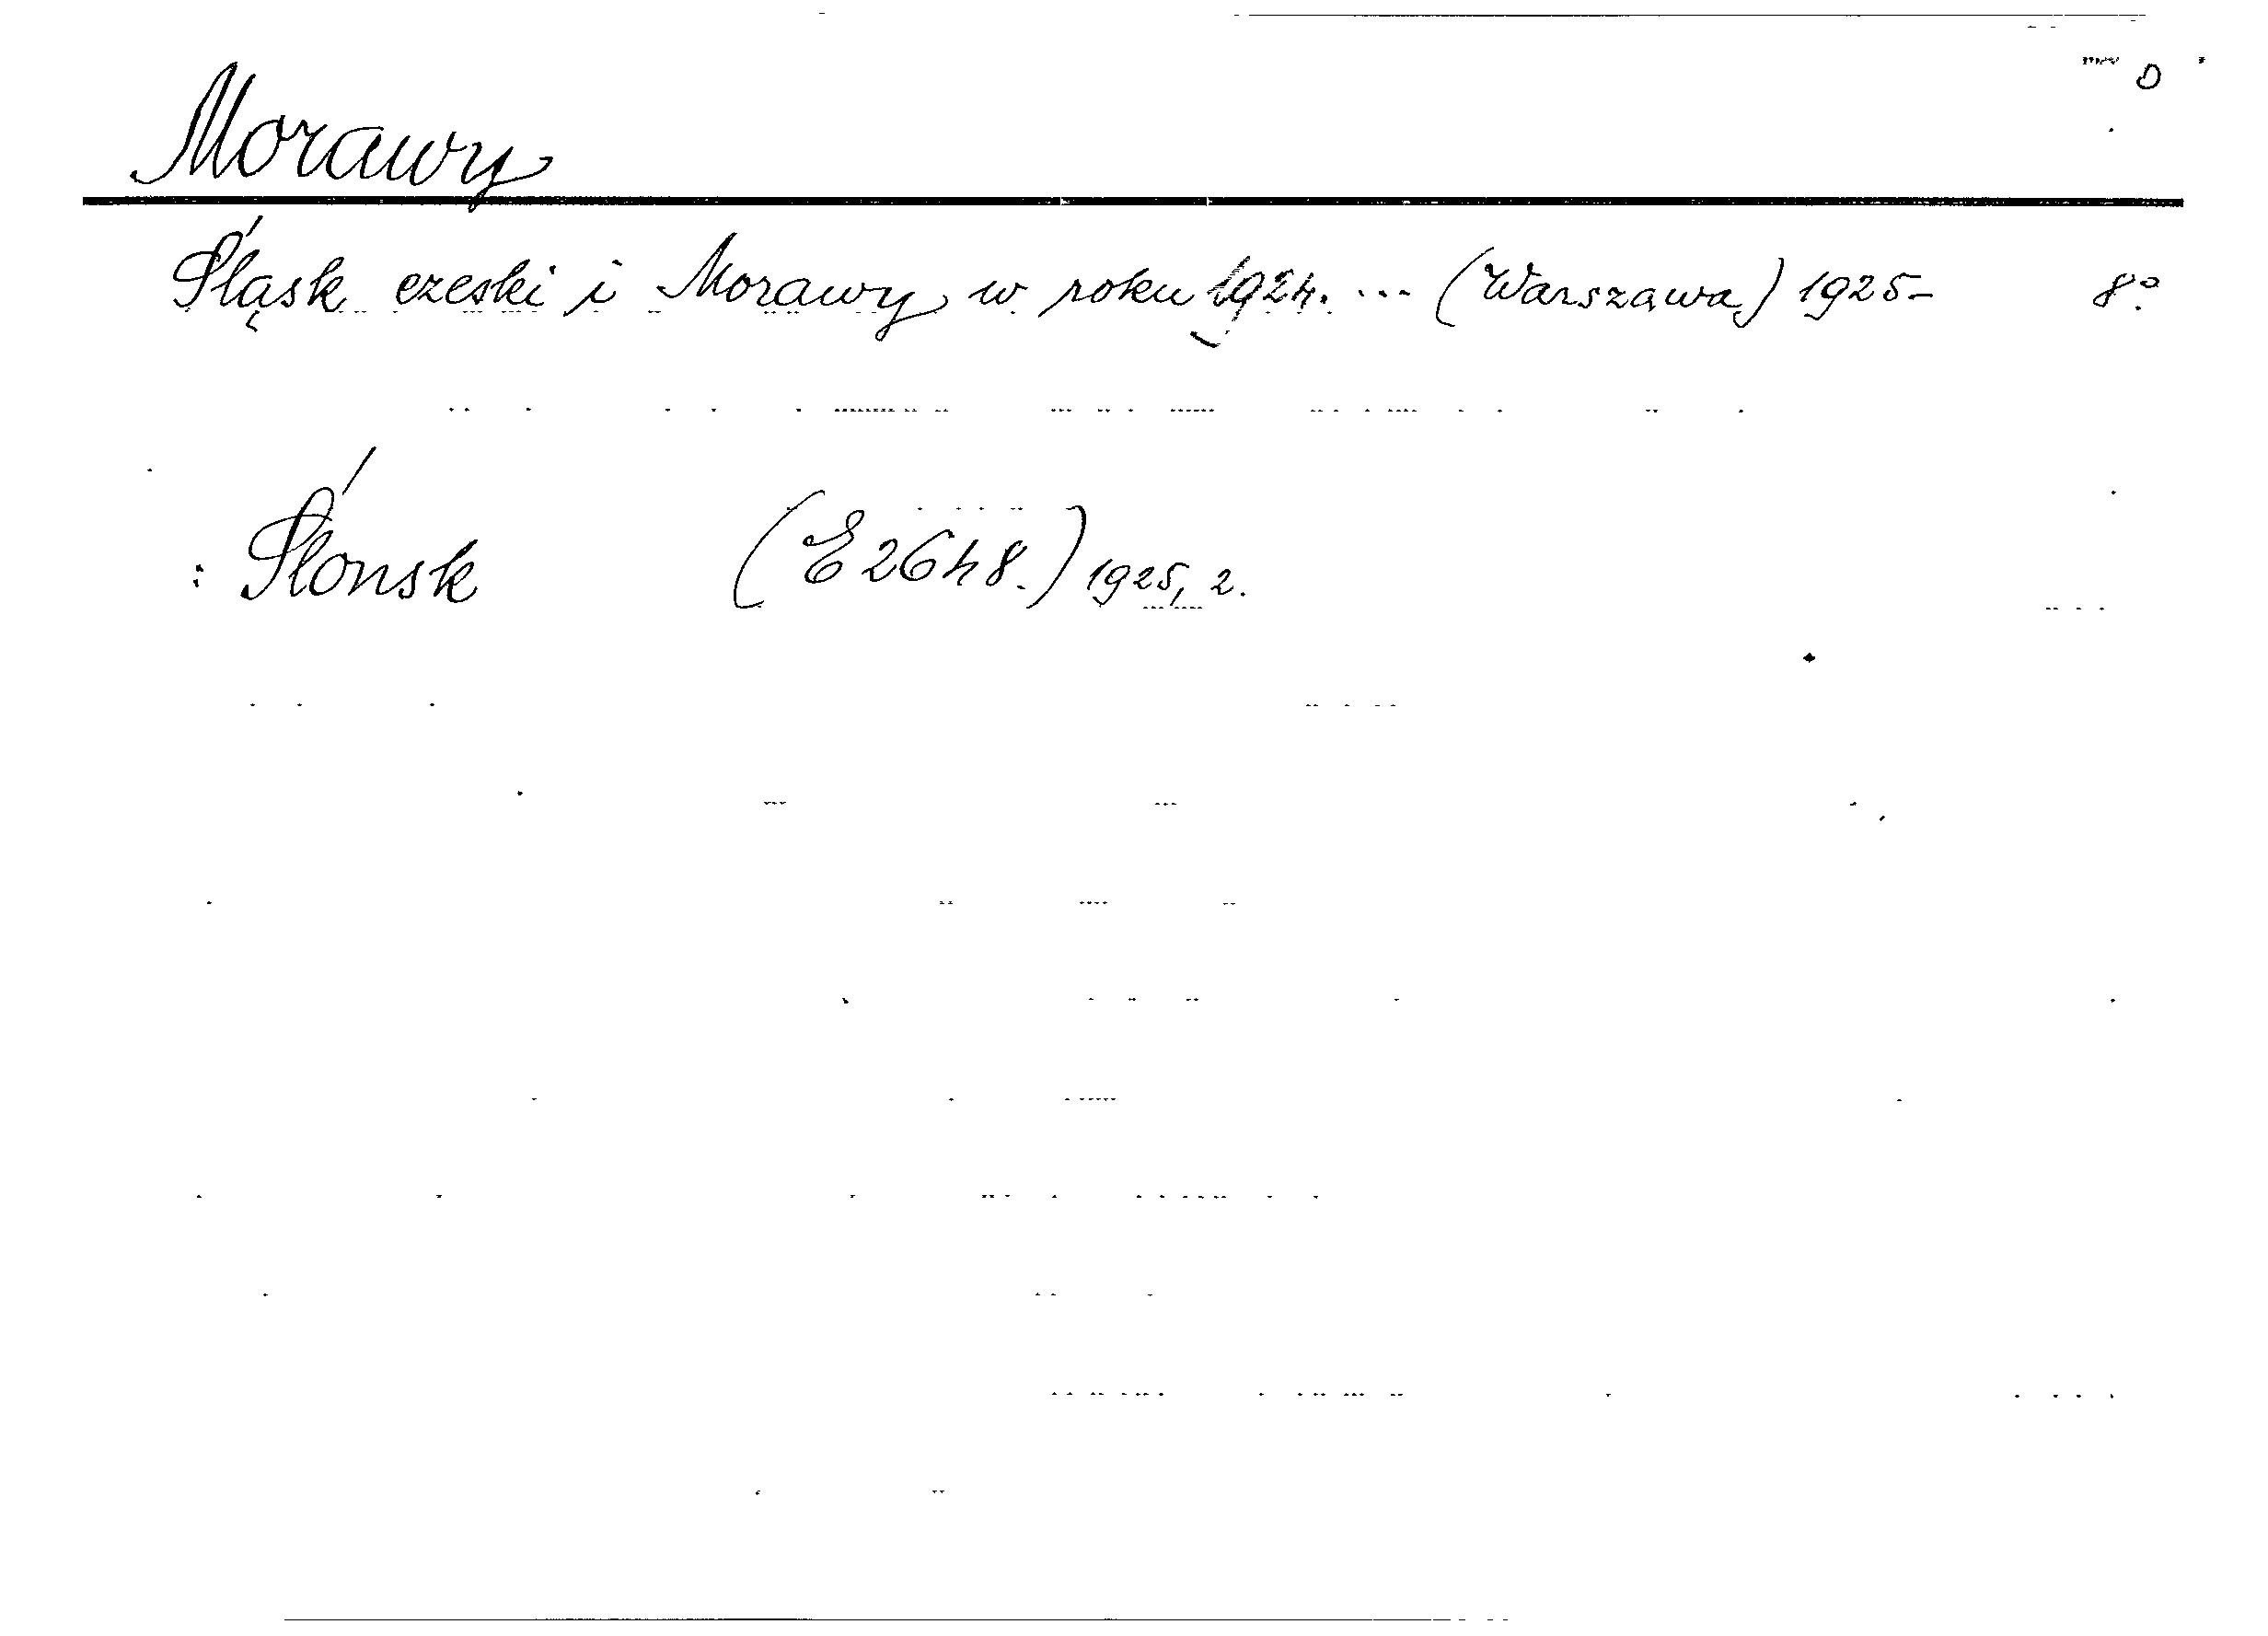 D
Morawy
Śląsk czeski i Morawy w roku 1924. ... (Warszawa) 1925- 8°.
: Ślonsk (E 2648.) 1925, 2.